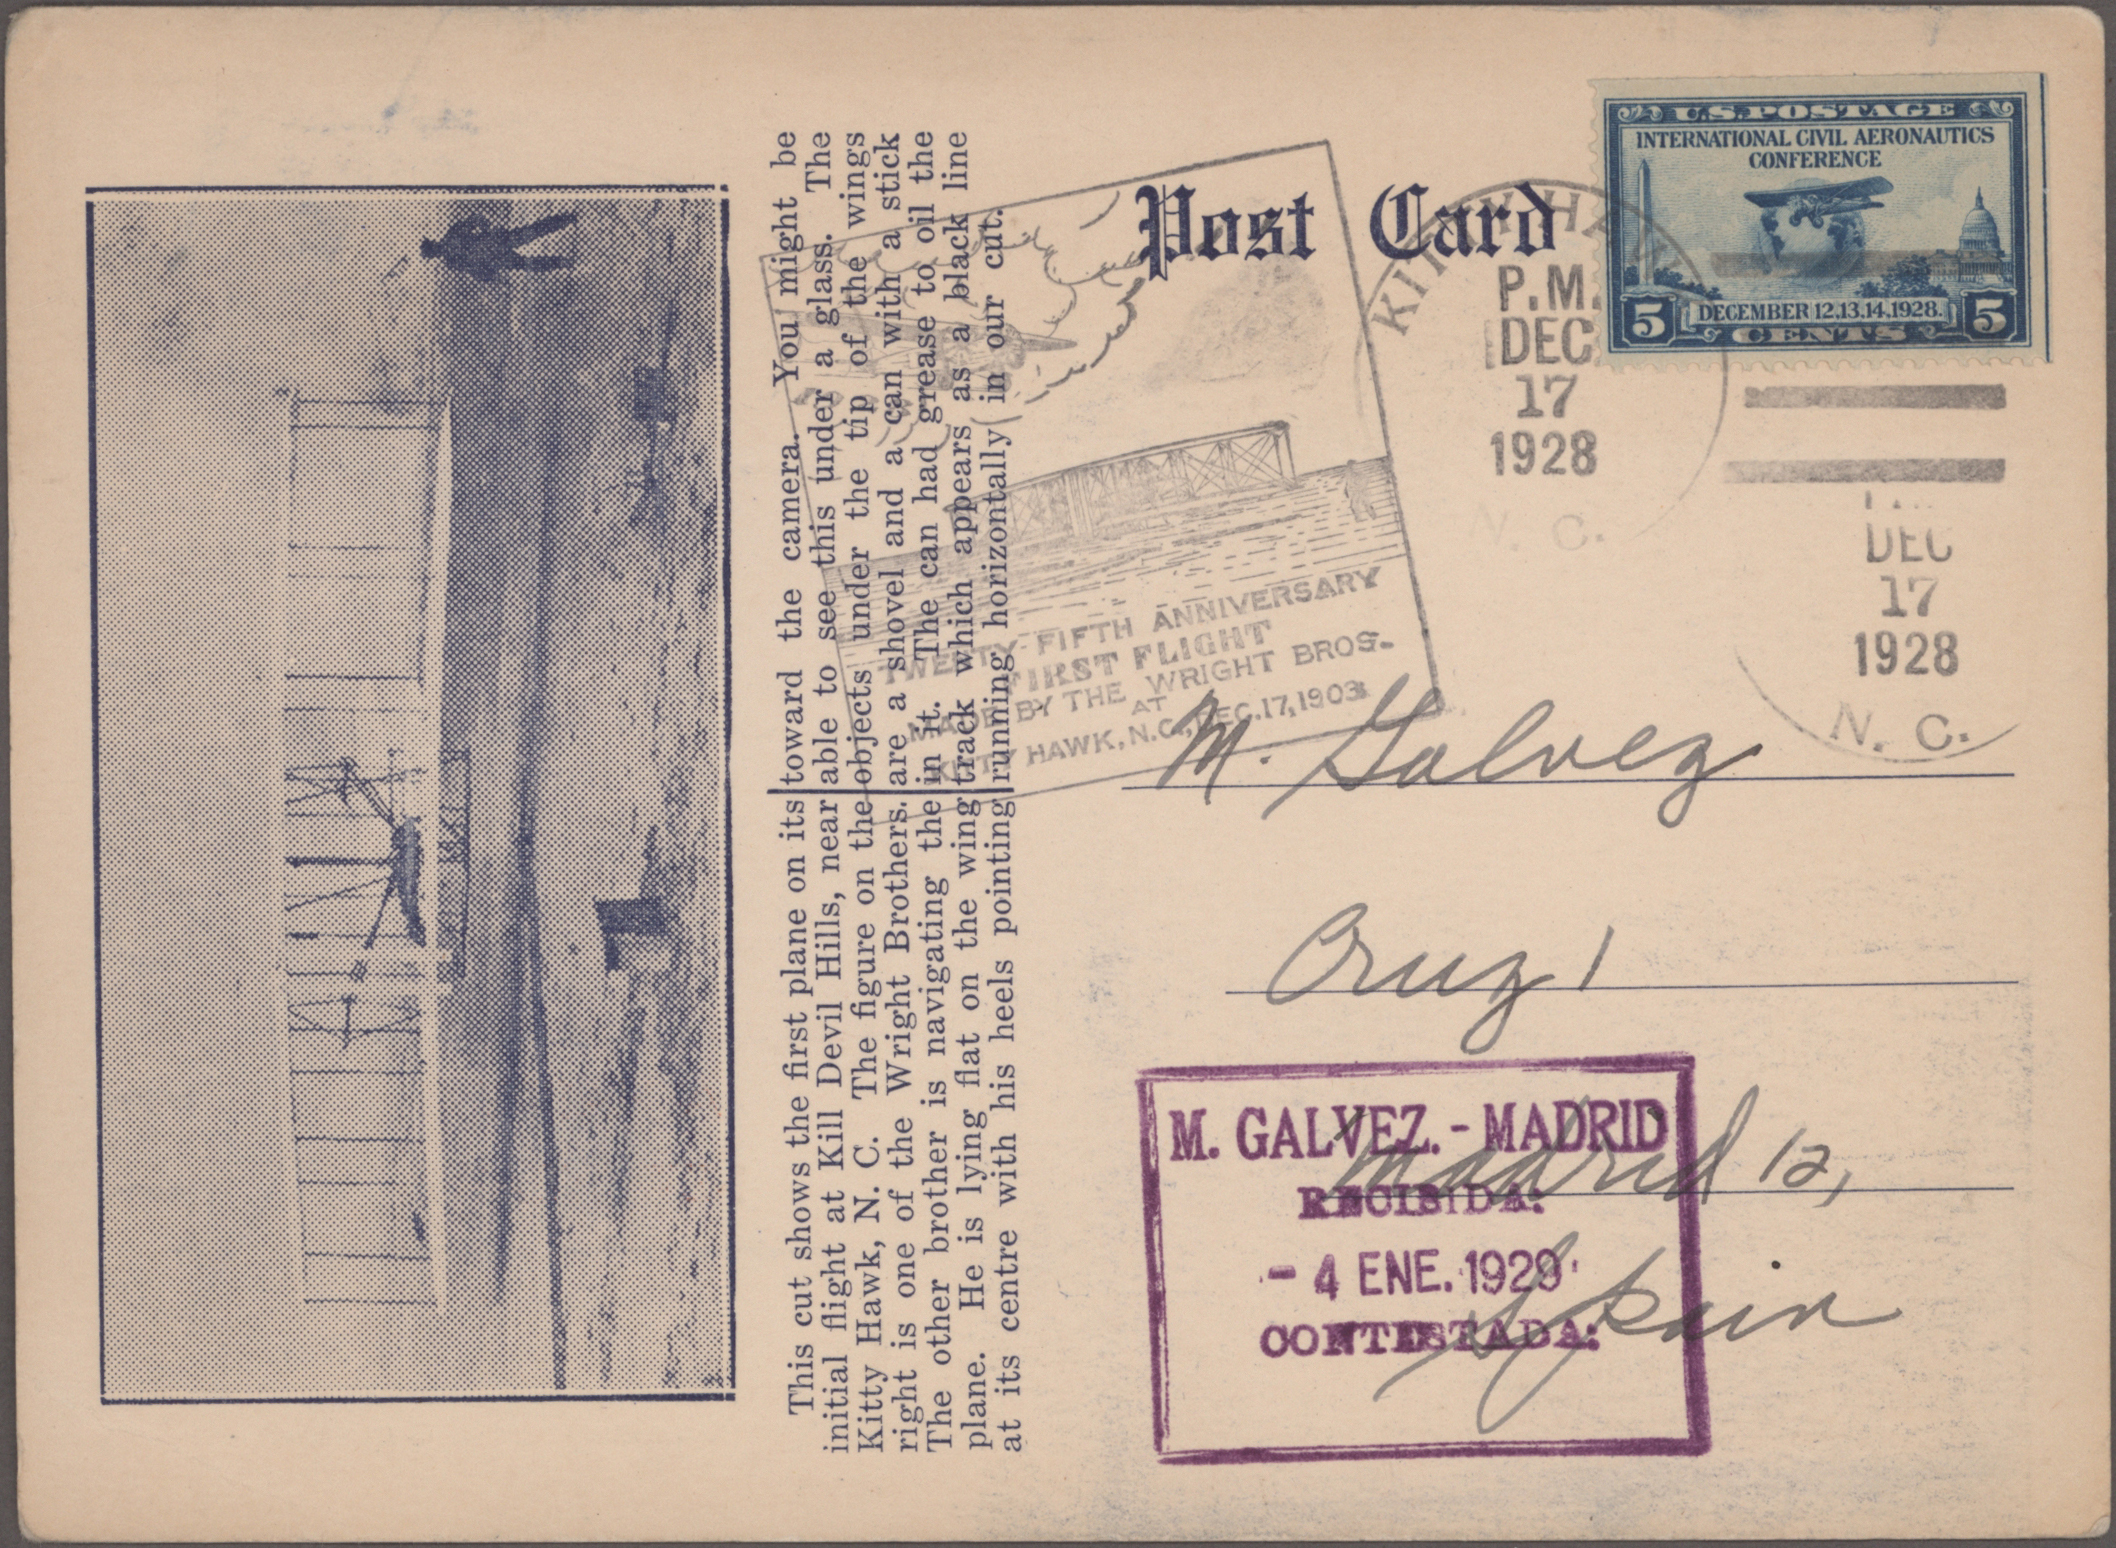 This cut shows the first plane on its
initial flight at Kill Devil Hills, near
Kitty Hawk, N. C. The figure on the
right is one of the Wright Brothers.
The other brother is navigating the
plane. He is lying flat on the wing
at its centre with his heels pointing
toward the camera. You might be
able to see this under a glass. The
objects under the tip of the wings
are a shovel and a can with a stick
in it. The can had grease to oil the
track which appears as a black line
running horizontally in our cut.
Post Card
U.S. POSTAGE
INTERNATIONAL CIVIL AERONAUTICS
CONFERENCE
5 DECEMBER 12.13.14.1928. 5
CENTS
KITTY HAWK
P.M.
DEC
17
1928
N. C.
DEC
17
1928
N. C.
TWENTY-FIFTH ANNIVERSARY
FIRST FLIGHT
MADE BY THE WRIGHT BROS-
AT
KITTY HAWK, N.C., DEC. 17, 1903
M. Galvez
Cruz 1
Madrid 12,
Spain
M. GALVEZ. - MADRID
RECIBIDA:
- 4 ENE. 1929
CONTESTADA: